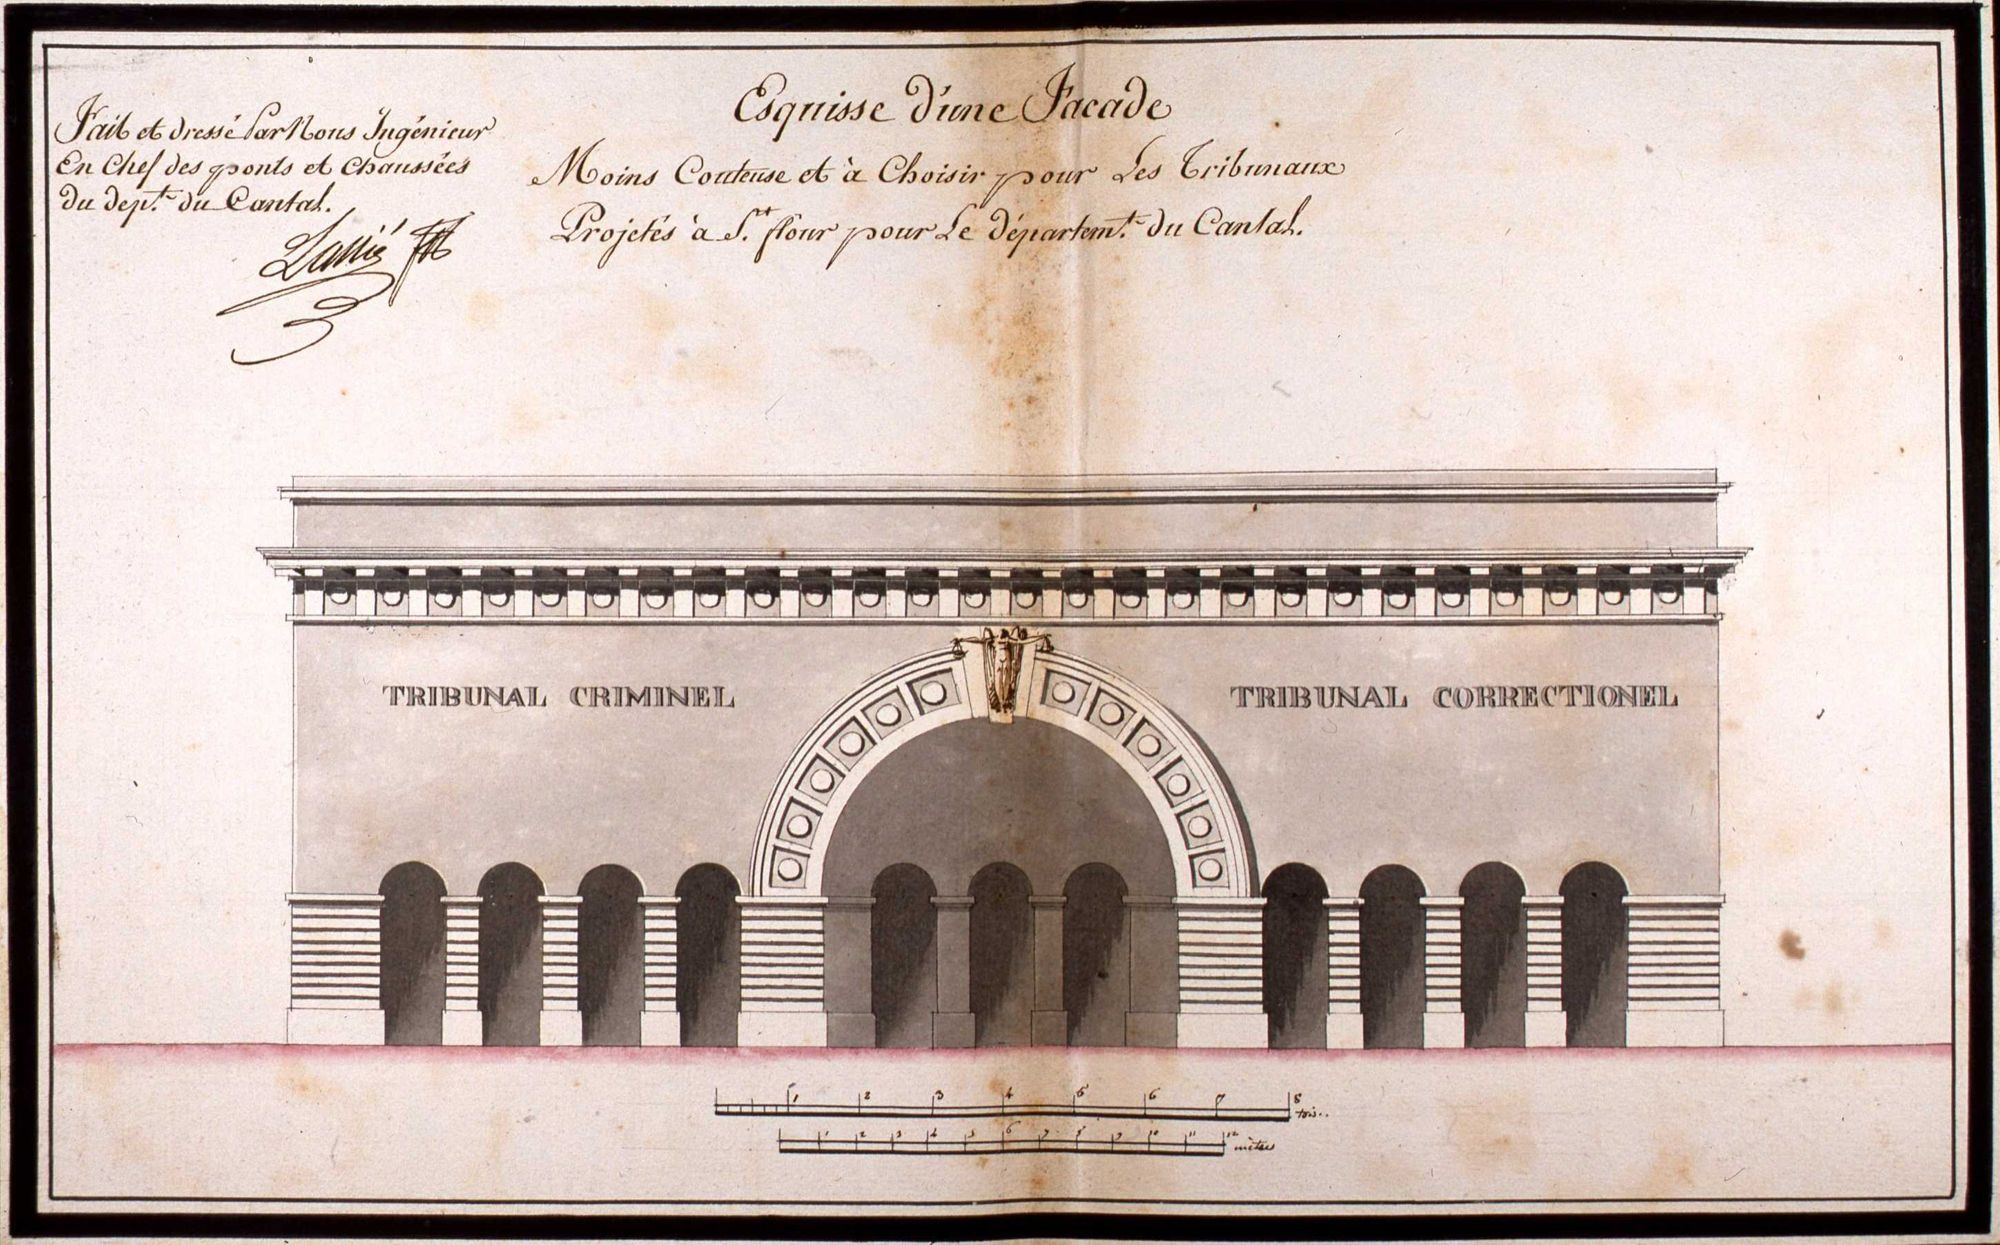 Esquisse d'une Facade
Moins Couteuse et à Choisir pour Les Tribunaux
Projetés à S.t flour pour Le départem.t du Cantal.
Fait et dressé Par Nous Ingénieur
En Chef des ponts et Chaussées
Du dep.t du Cantal.
TRIBUNAL CRIMINEL
TRIBUNAL CORRECTIONEL
1 2 3 4 5 6 7 8 tois..
1 2 3 4 5 6 7 8 9 10 11 12 mètres